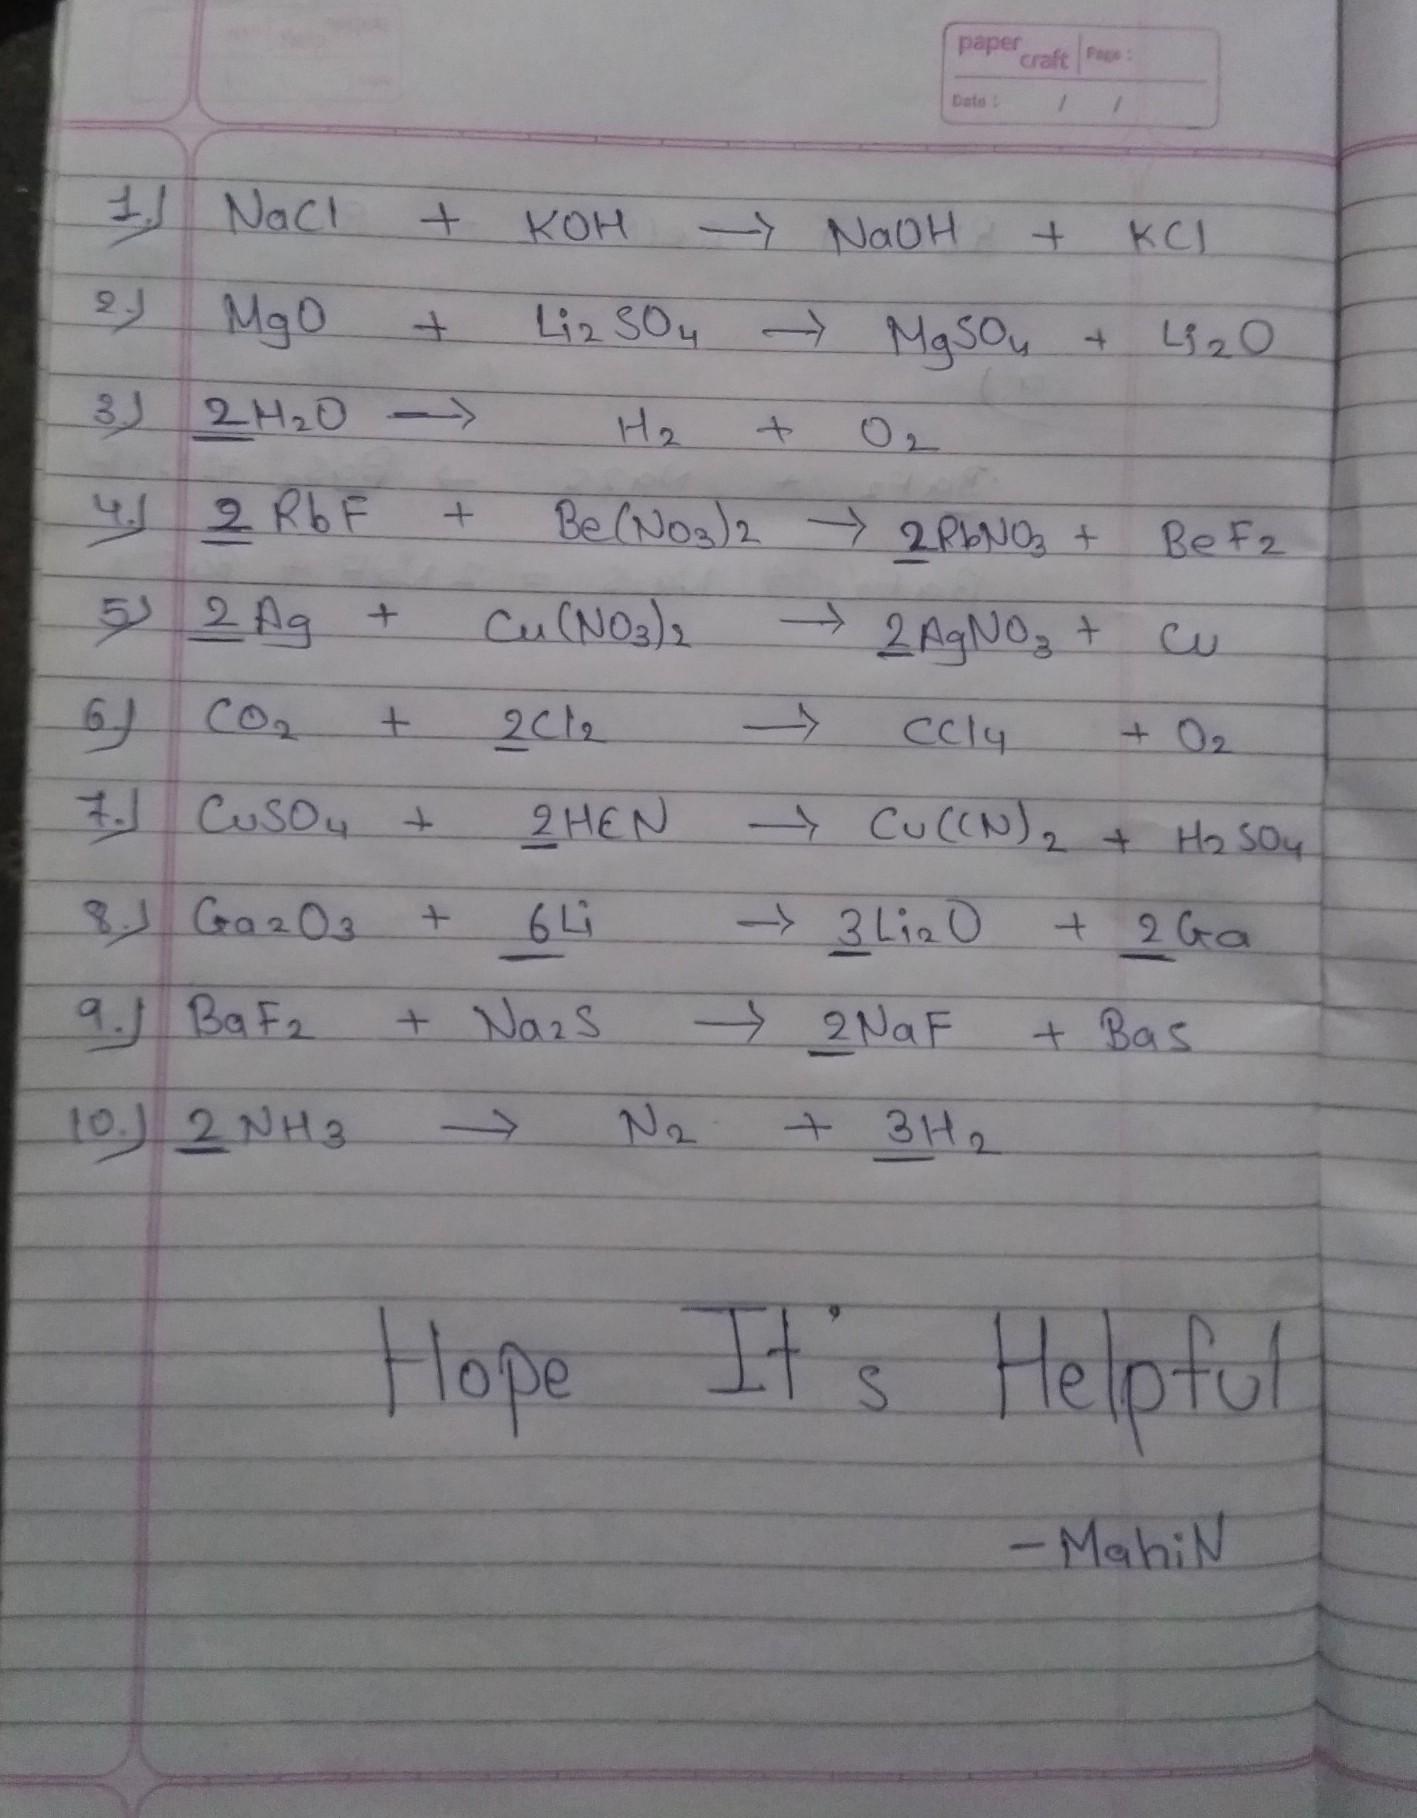 paper craft Page :
Date : / /
1.) NaCl + KOH → NaOH + KCl
2.) MgO + Li2SO4 → MgSO4 + Li2O
3.) 2H2O → H2 + O2
4.) 2RbF + Be(NO3)2 → 2RbNO3 + BeF2
5.) 2Ag + Cu(NO3)2 → 2AgNO3 + Cu
6.) CO2 + 2Cl2 → CCl4 + O2
7.) CuSO4 + 2HCN → Cu(CN)2 + H2SO4
8.) Ga2O3 + 6Li → 3Li2O + 2Ga
9.) BaF2 + Na2S → 2NaF + BaS
10.) 2NH3 → N2 + 3H2
Hope It's Helpful
- MahiN